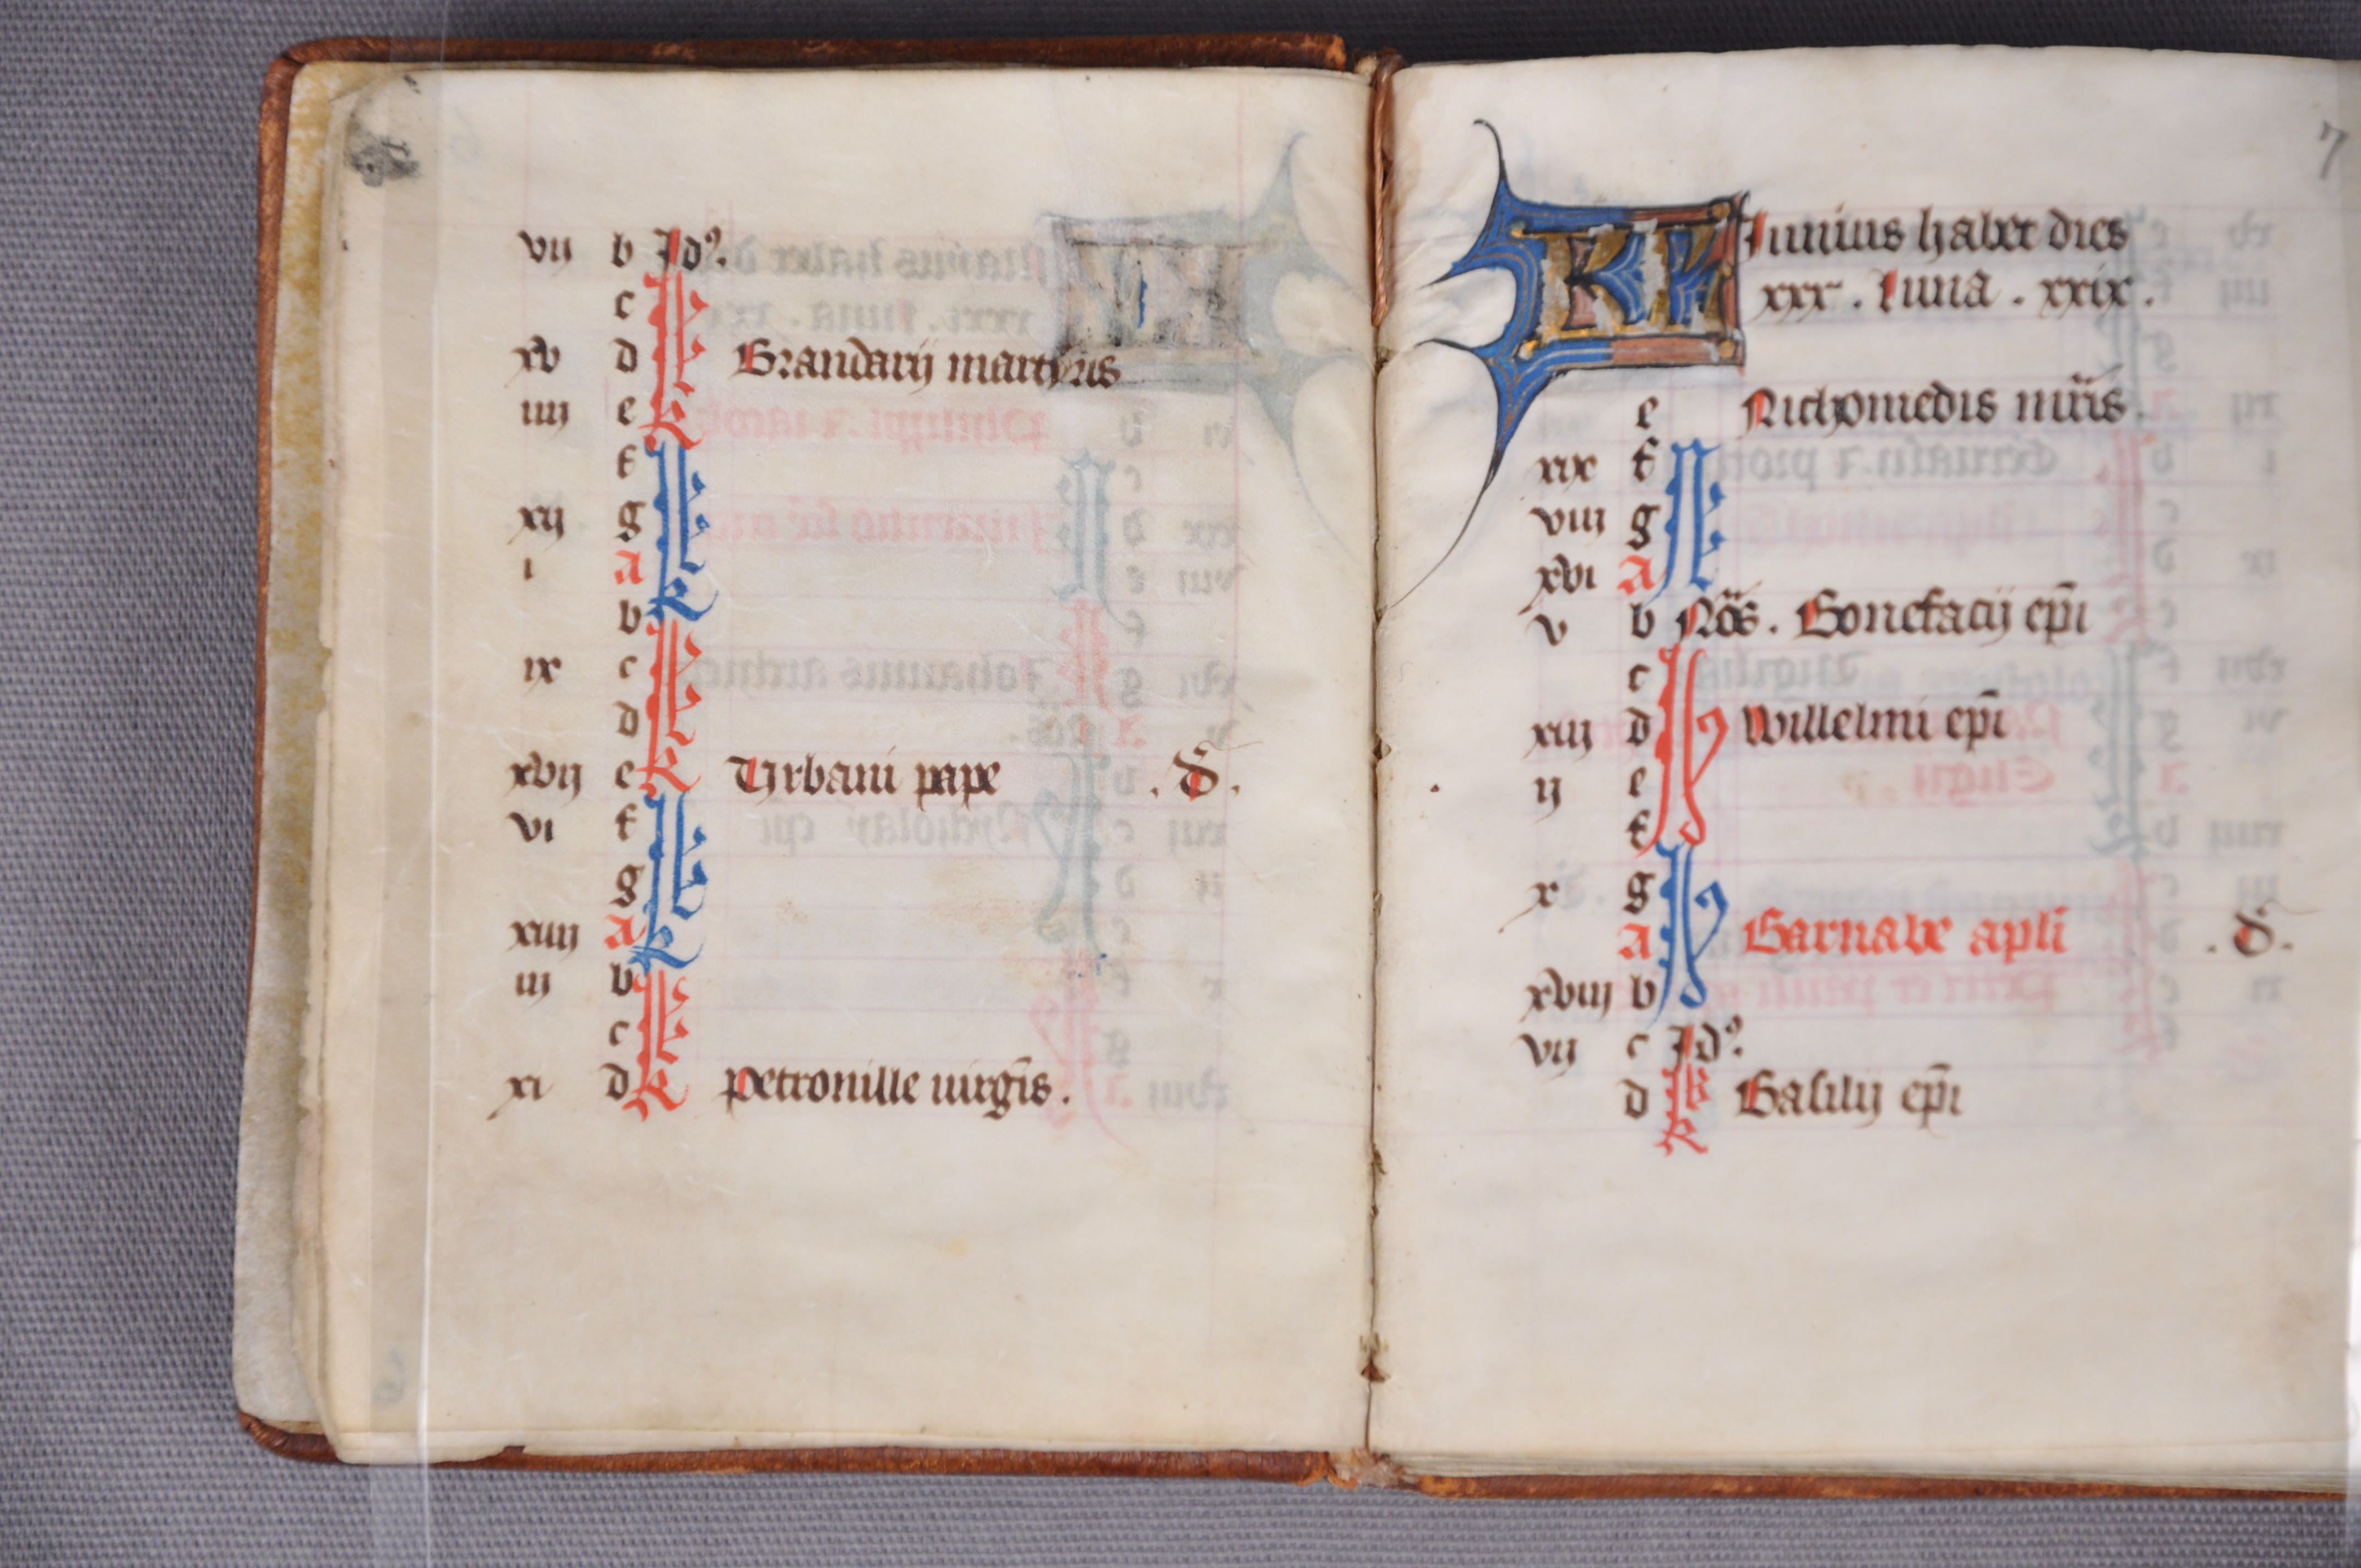 vij b Id9.
c kl
xv d kl Brandarij martyris
iiij e kl
f kl
xij g kl
i a kl
b kl
ix c kl
d kl
xvij e kl Urbani pape .d.
vi f kl
g kl
xiiij a kl
iij b kl
c kl
xi d kl petronille uirgis.
7
KL Iunius habet dies
xxx. luna. xxix.
e Nichomedis mris.
xix f N
viij g
xvi A
v b Nos. Bonefacij epi
c
xiij d Willelmi epi
ij e
f
x g
A Barnabe apli .d.
xviij b
vij c Id9.
d kl Basilij epi